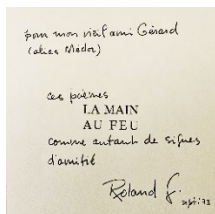 pour mon vieil ami Gérard
(alias Médor)
ces poèmes
LA MAIN
AU FEU
comme autant de signes
d'amitié
Roland G.
sept. 73